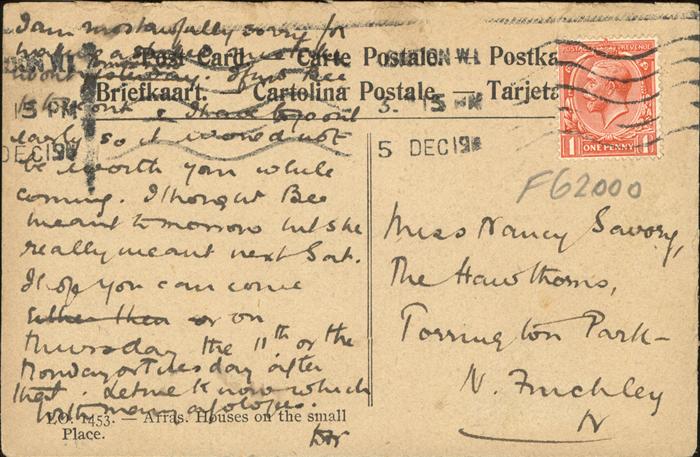 I am most awfully sorry for
Post Card — Carte Postale — Postka
yesterday. I just Bee
Briefkaart. — Cartolina Postale. — Tarjeta
LONDON W.1
3. 15 PM
5 DEC 19
POSTAGE REVENUE
1 ONE PENNY 1
& I have to go out
early, so it would not
be worth your while
coming. I thought Bee
meant tomorrow but she
really meant next Sat.
I hope you can come
either then or on
Thursday the 11th or the
Monday or Tuesday after
that. Let me know which
with many apologies.
LO. 1453. — Arras. Houses on the small
Place.
F62000
Miss Nancy Savory,
The Hawthorns,
Torrington Park—
N. Finchley
N